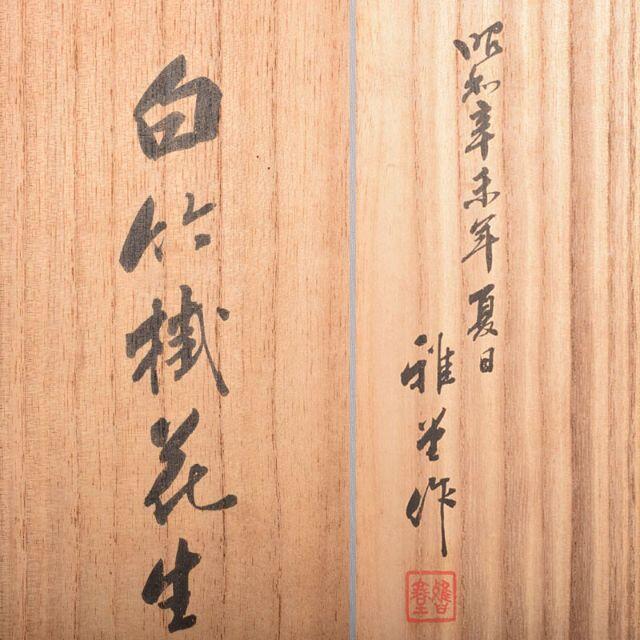 白竹掛花生
昭和辛未年夏日
雅堂作